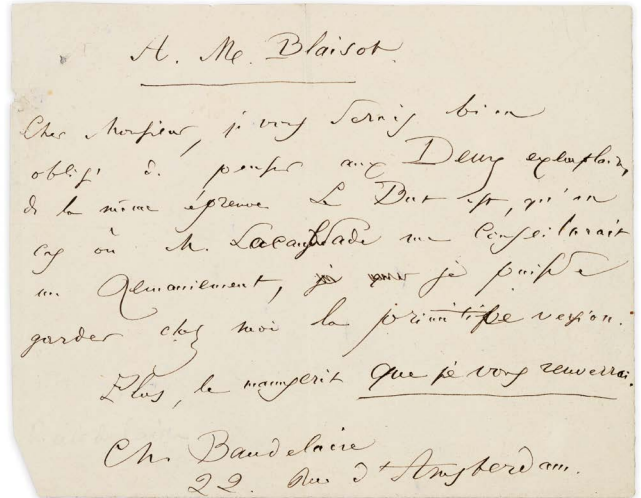 A. M. Blaisot.
Cher Monsieur, je vous serais bien
obligé de penser aux Deux exemplaires
de la même épreuve. Le But est, qu'en
cas où M. Lacaussade me conseillerait
un Remaniement, je puisse
garder chez moi la primitive version.
Plus, le manuscrit que je vous renverrai.
Ch. Baudelaire
22. Rue d'Amsterdam.